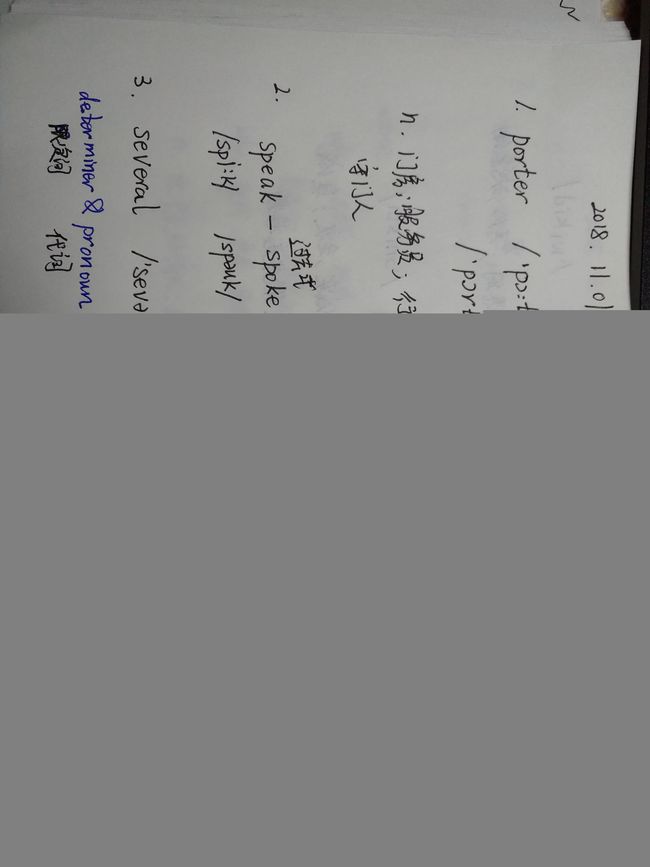 2018. 11.01
1. porter /ˈpɔːt
/ˈpɔrt
n. 门房; 服务员; 行
守门人
过去式
2. speak — spoke
/spiːk/ /spəuk/
3. several /ˈsevə
determiner & pronoun
限定词 代词